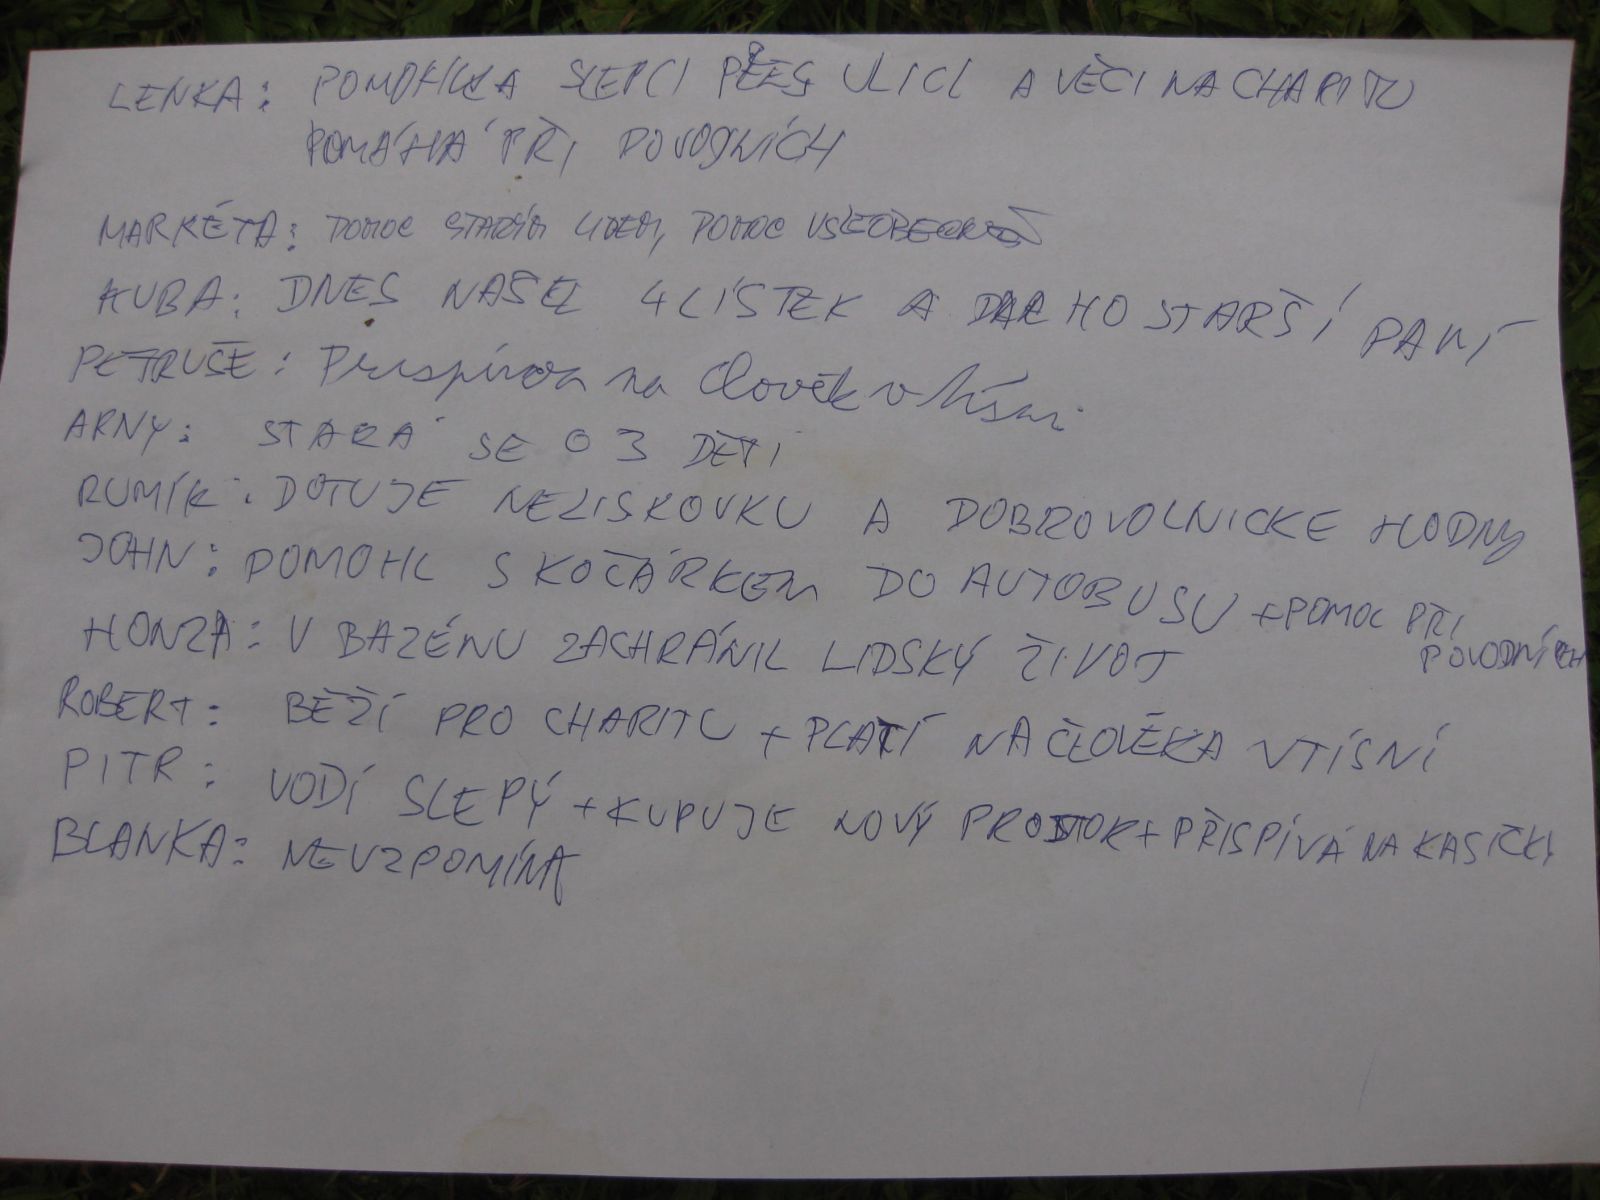 LENKA: POMOHLA SLEPCI PŘES ULICI A VĚCI NA CHARITU
POMÁHÁ PŘI POVODNÍCH
MARKÉTA: POMOC STARŠÍM LIDEM, POMOC VŠEOBECNĚ
KUBA: DNES NAŠEL 4LÍSTEK A DAL HO STARŠÍ PANÍ
PETRUŠE: Přispívám na Člověk v tísni
ARNY: STARÁ SE O 3 DĚTI
RUMÍK: DOTUJE NEZISKOVKU A DOBROVOLNICKE HODNY
JOHN: POMOHL S KOČÁRKEM DO AUTOBUSU + POMOC PŘI
POVODNÍCH
HONZA: V BAZÉNU ZACHRÁNIL LIDSKÝ ŽIVOT
ROBERT: BĚŽÍ PRO CHARITU + PLATÍ NA ČLOVĚKA V TÍSNÍ
PITR: VODÍ SLEPÝ + KUPUJE NOVÝ PROSTOR + PŘISPÍVÁ NA KASIČKY
BLANKA: NEVZPOMÍNÁ